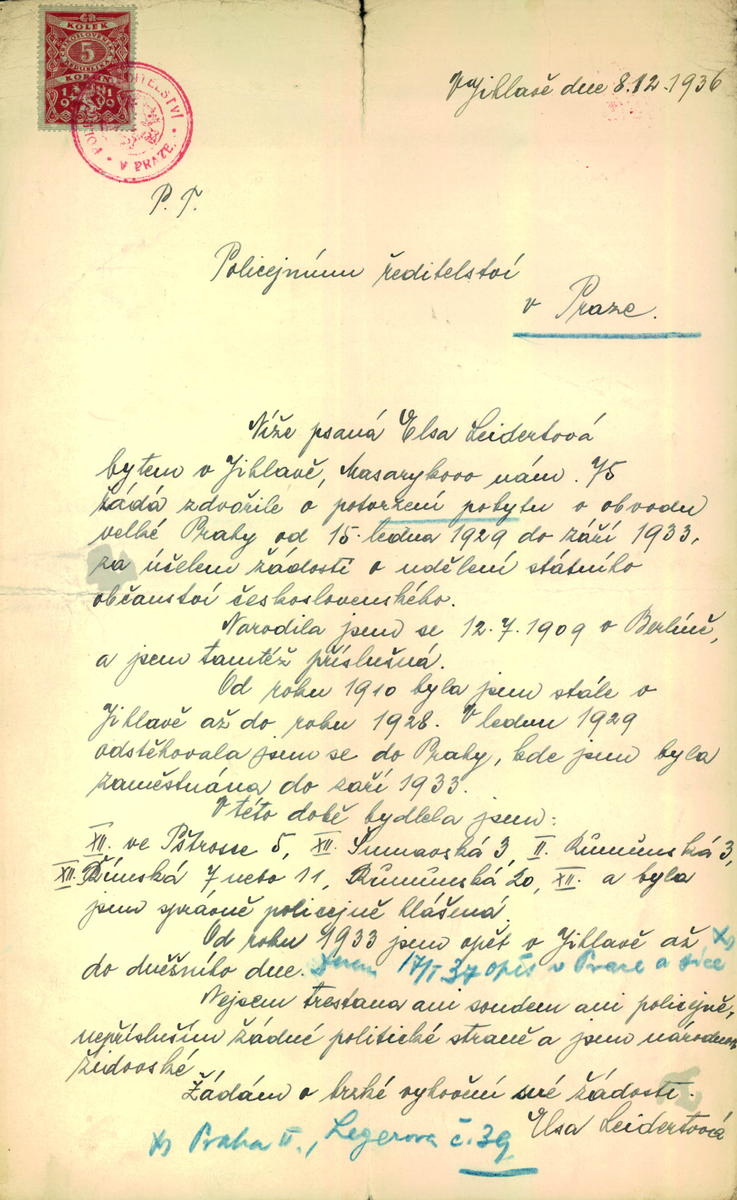 KOLEK
5
KORUN
POLICEJNÍ ŘEDITELSTVÍ
V PRAZE
V Jihlavě dne 8.12.1936
P. T.
Policejnímu ředitelství
v Praze.
Níže psaná Elsa Leidertová
bytem v Jihlavě, Masarykovo nám. 75
žádá zdvořile o potvrzení pobytu v obvodu
velké Prahy od 15. ledna 1929 do září 1933,
za účelem žádosti o udělení státního
občanství československého.
Narodila jsem se 12.7.1909 v Berlíně,
a jsem tamtéž příslušná.
Od roku 1910 byla jsem stále v
Jihlavě až do roku 1928. V lednu 1929
odstěhovala jsem se do Prahy, kde jsem byla
zaměstnána do září 1933.
V této době bydlela jsem:
XII. ve Pštrosse 5, XII. Šumavská 3, II. Růmůnská 3,
XII. Římská 7 nebo 11, Růmůnská 20, XII. a byla
jsem správně policejně hlášená.
Od roku 1933 jsem opět v Jihlavě až
do dněšního dne. 17/I 37 opět v Praze a sice
Nejsem trestana ani soudem ani policejně,
nepříslušim žádné politické straně a jsem národnos
židovské.
Žádám o brzké vyhovění své žádosti.
Elsa Leidertová
x) Praha II., Legerova č. 39